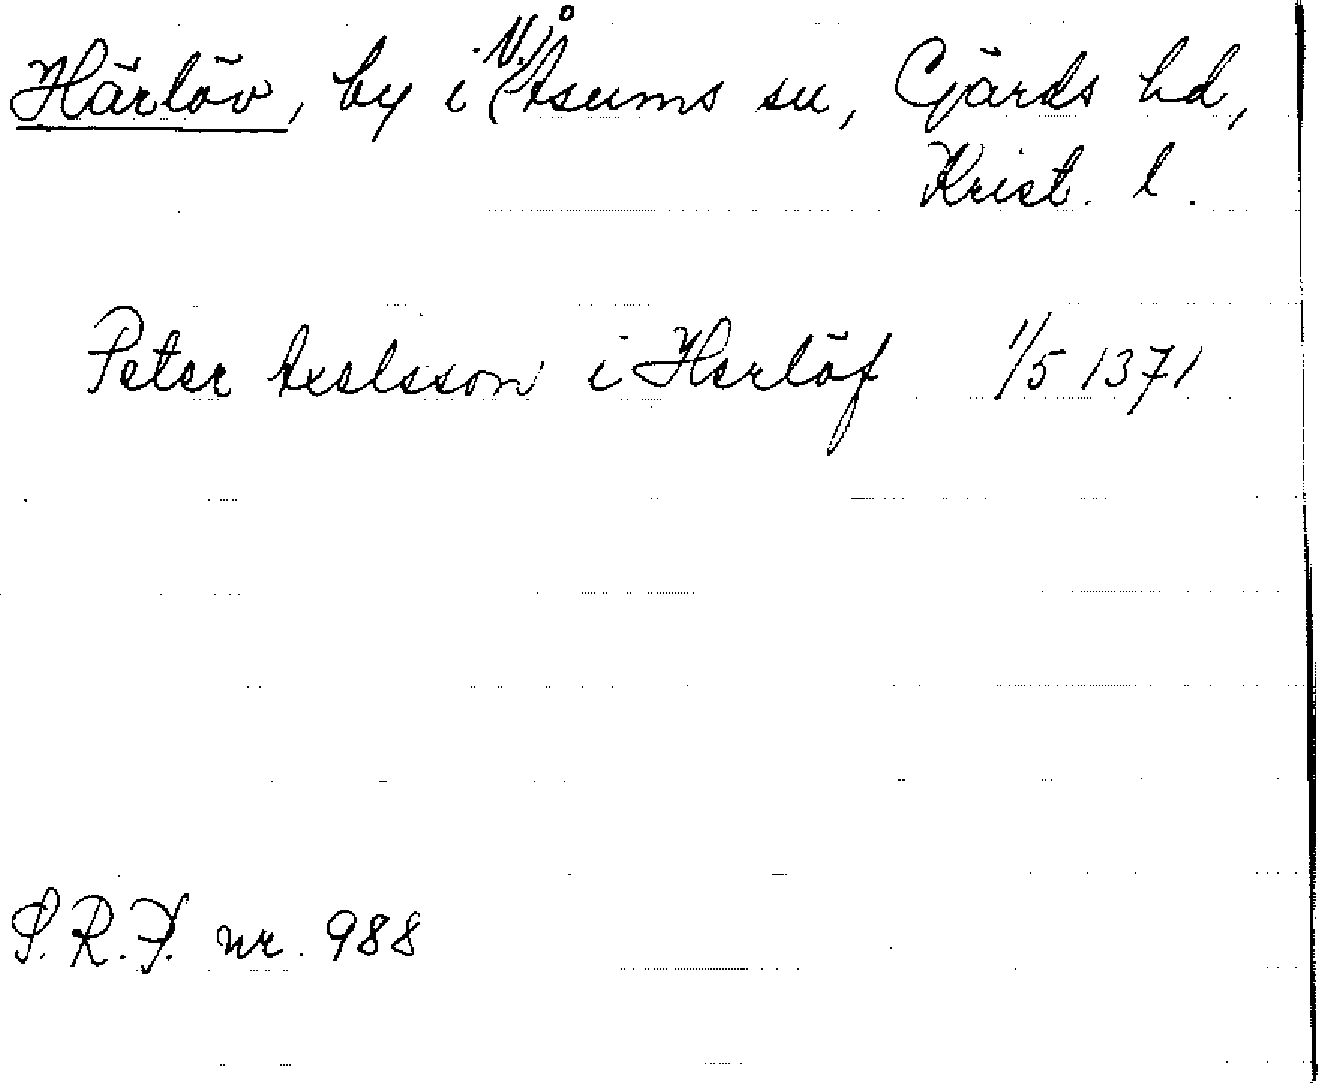 Härlöv, by i N. Åsums sn, Gärds hd,
Krist. l.
Peter Axelsson i Herlöf 1/5 1371
S.R.P. nr. 988